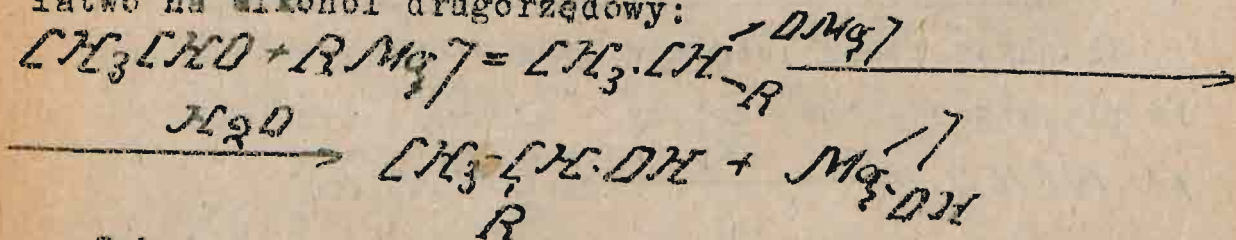 łatwo na alkohol drugorzędowy:
CH₃CHO + RMgJ = CH₃·CH OMgJ
-R
H₂O
CH₃-CH·OH + Mg J
R -OH